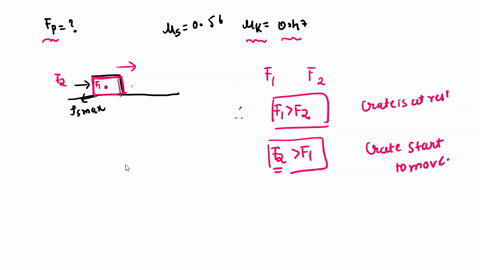 Fp=? μs=0.56 μk=0.47
F1 F2
F2 F1
fsmax
∴ F1>F2 Crate is at rest
F2>F1 Crate start
to move.